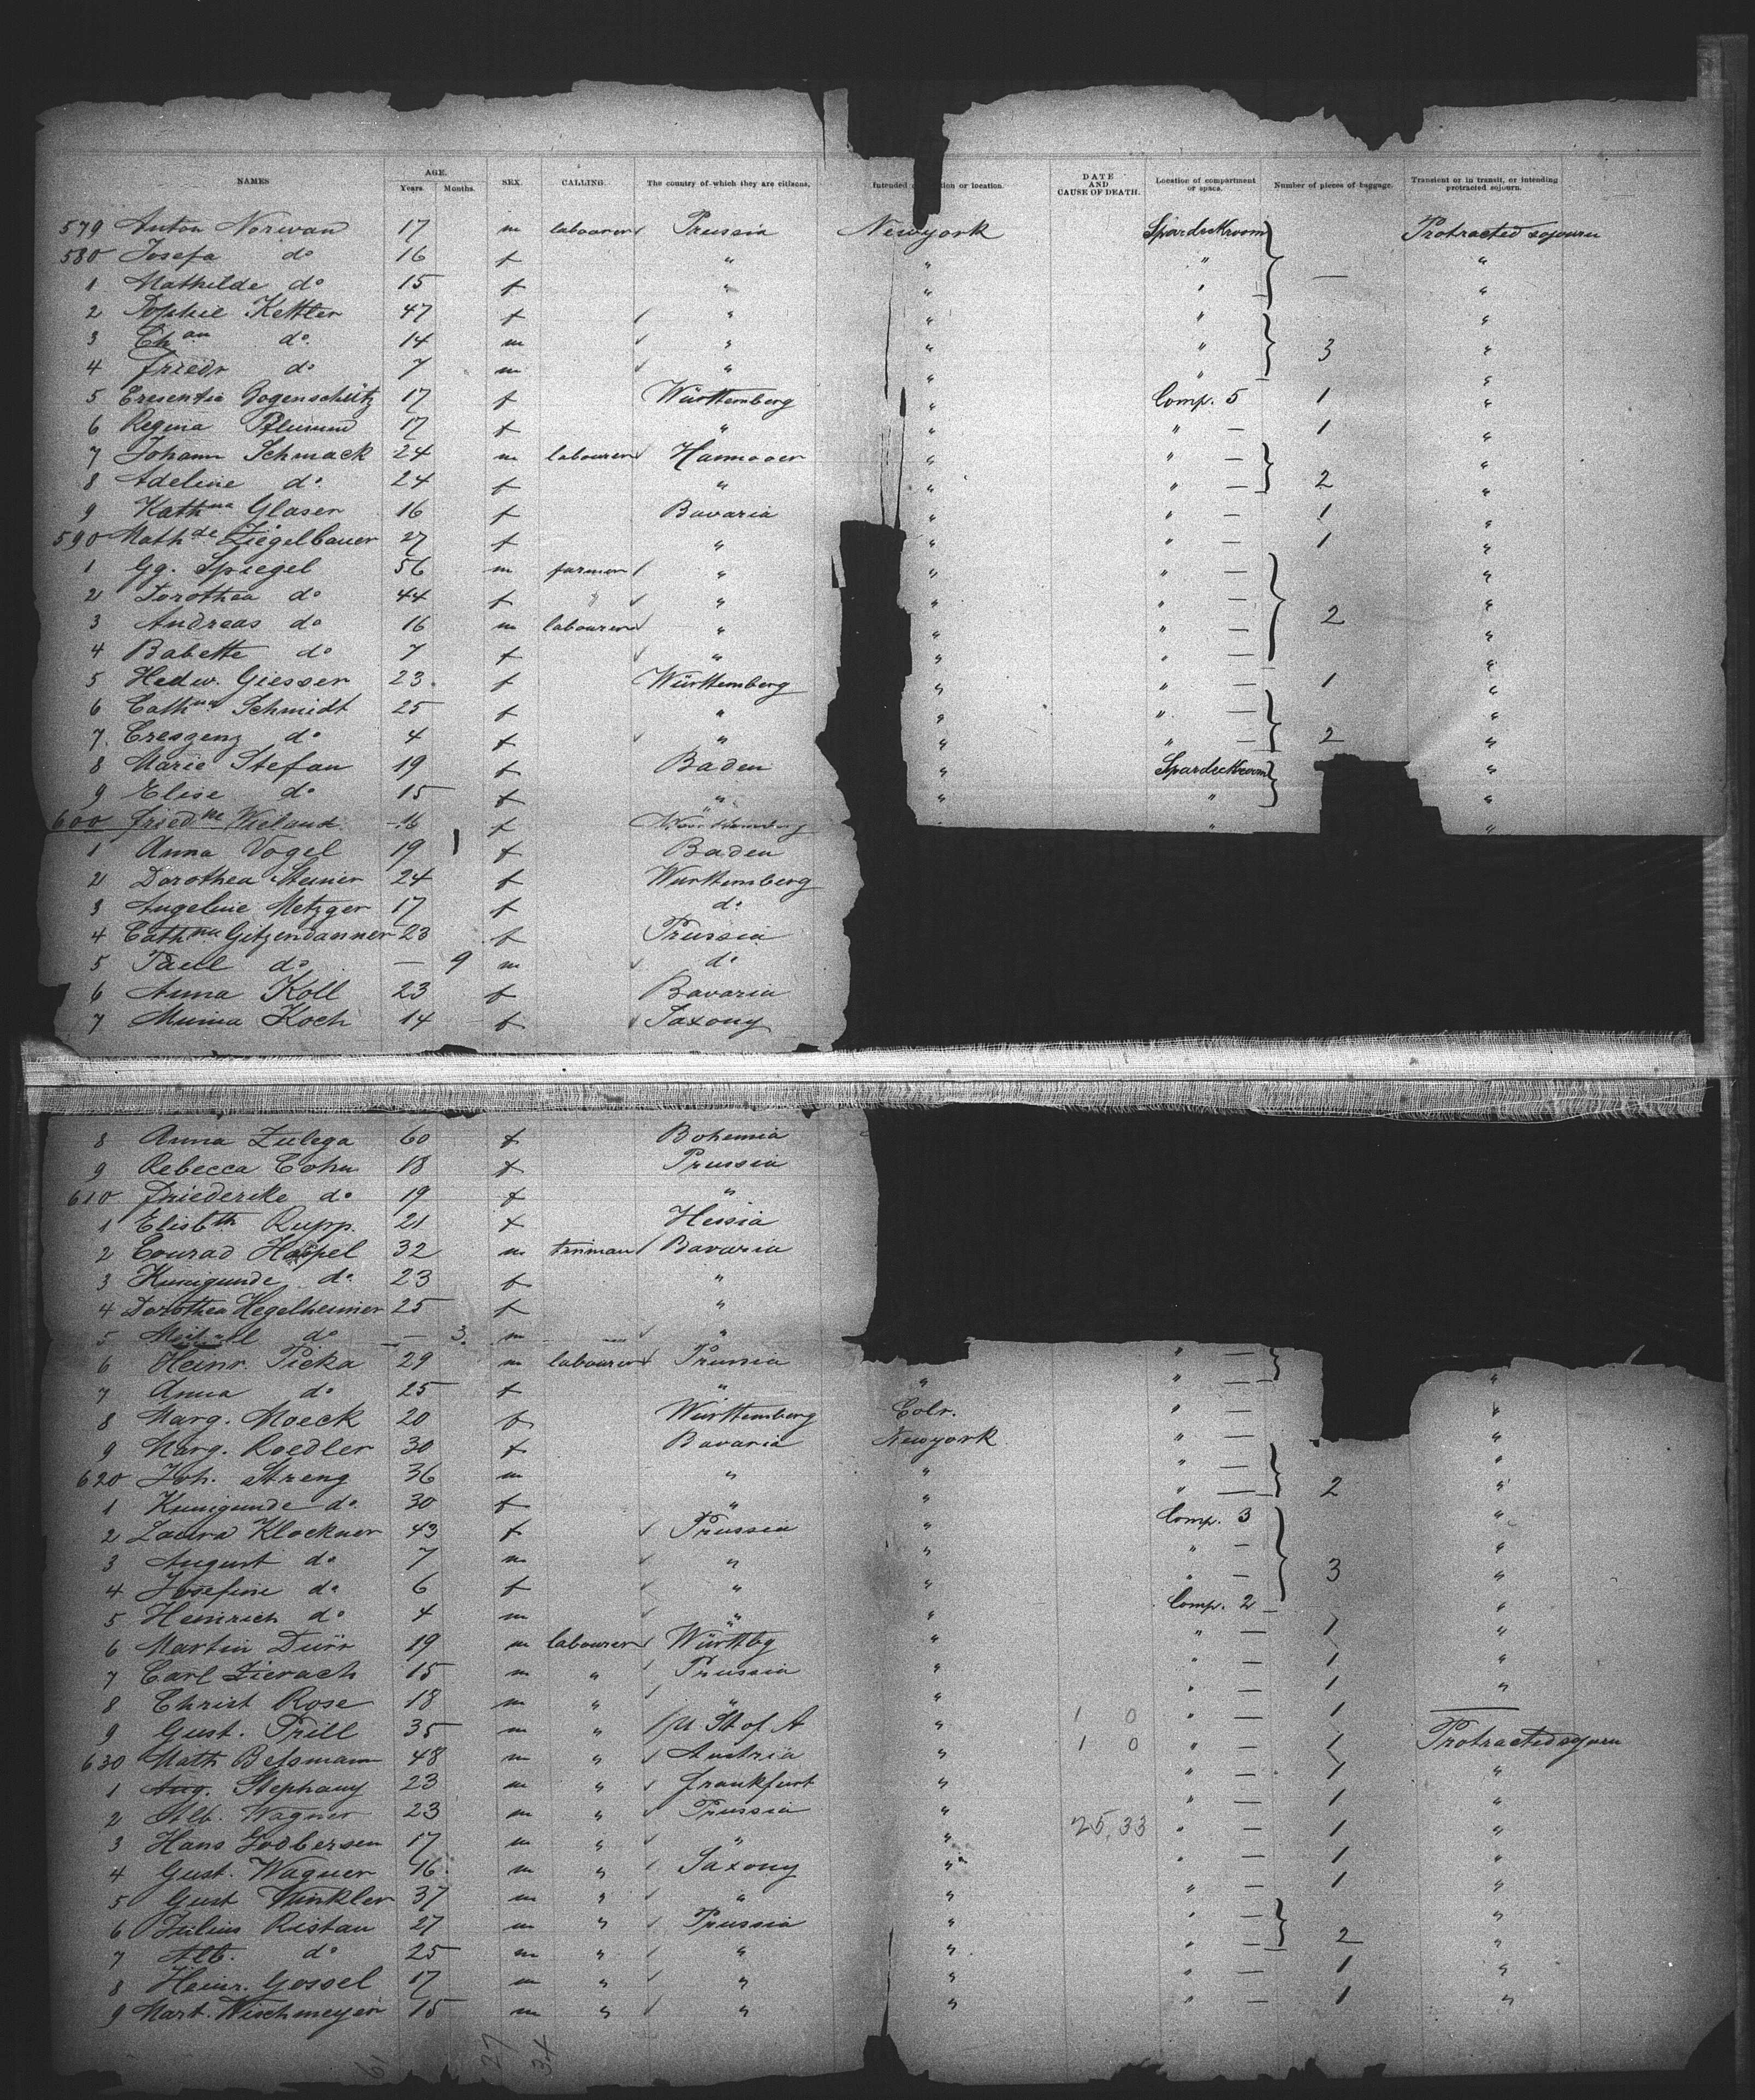 NAMES AGE. Years. Months. SEX. CALLING. The country of which they are citizens. Intended location or location. DATE AND CAUSE OF DEATH. Location of compartment or space. Number of pieces of baggage. Transient or in transit, or intending protracted sojourn.
579 Anton Norwan 17 m labourer Prussia Newyork Spardeckroom Protracted sojourn
580 Josefa do 16 f " " " "
1 Mathilde do 15 f " " " — "
2 Sophie Kettler 47 f " " " "
3 Chan do. 14 m " " " 3 "
4 Friedr do 7 m " " " "
5 Cresentia Gogenschütz 17 f Württemberg " Comp. 5 1 "
6 Regina Pflumm 17 f " " " — 1 "
7 Johann Schmack 24 m labourer Hannover " " — "
8 Adeline do. 24 f " " " — 2 "
9 Kathna Glaser 16 f Bavaria " " — 1 "
590 Mathde Ziegelbauer 27 f " " " — 1 "
1 Gg. Spiegel 56 m farmer " " " — "
2 Dorothea do 44 f " " " — "
3 Andreas do 16 m labourer " " " — 2 "
4 Babette do 7 f " " " — "
5 Hedw. Giesser 23. f Württemberg " " — 1 "
6 Cathna Schmidt 25 f " " " — "
7. Creszenz do 4 f " " " — 2 "
8 Marie Stefan 19 f Baden " Spardeckroom "
9 Elise do 15 f " " " "
600 Friedke Wieland 16 f Württemberg " " "
1 Anna Vogel 19 f Baden
2 Dorothea Steiner 24 f Württemberg
3 Angeline Metzger 17 f do
4 Cathna Gitzendanner 23 f Prussia
5 Paul do — 9 m do
6 Anna Koll 23 f Bavaria
7 Minna Koch 14 f Saxony
8 Anna Zulega 60 f Bohemia
9 Rebecca Cohn 18 f Prussia
610 Friedericke do 19 f "
1 Elisbth Rupp. 21 f Hessia
2 Conrad Hoepel 32 m tinman Bavaria
3 Kunigunde do. 23 f "
4 Dorothea Hegelheimer 25 f "
5 do — 3. m "
6 Heinr. Picka 29 m labourer Prussia " —
7 Anna do 25 f " " " — "
8 Marg. Moeck 20 f Württemberg Colr. " — "
9 Marg. Roedler 30 f Bavaria Newyork " — "
620 Joh. Streng 36 m " " " — "
1 Kunigunde do. 30 f " " " — 2 "
2 Laura Klockner 43 f Prussia " Comp. 3 "
3 August do 7 m " " " — "
4 Josefine do 6 f " " " — 3 "
5 Heinrich do 4 m " " Comp. 2 "
6 Martin Dürr 19 m labourer Württbg " " — 1 "
7 Carl Zierach 15 m " Prussia " " — 1 "
8 Christ Rose 18 m " " " " — 1 "
9 Gust. Prill 35 m " U. St of A " 1 0 " — 1 —
630 Math Bessmann 48 m " Austria " 1 0 " — 1 Protracted sojourn
1 Aug. Stephany 23 m " Frankfurt " " — 1 "
2 Alb. Wagner 23 m " Prussia " " — 1 "
3 Hans Jodbersen 17 m " " " 25,33 " — 1 "
4 Gust. Wagner 16 m " Saxony " " — 1 "
5 Gust Winkler 37 m " " " " — 1 "
6 Julius Ristau 27 m " Prussia " " — "
7 Alb. do 25 m " " " " — 2 "
8 Heinr. Gossel 17 m " " " " — 1 "
9 Mart. Wischmeyer 15 m " " " " — 1 "
61 27 34